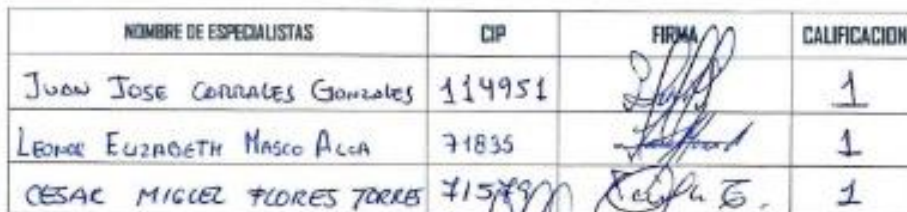 NOMBRE DE ESPECIALISTAS CIP FIRMA CALIFICACION
JUAN JOSE CORRALES GONZALES 114951 1
LEONOR ELIZABETH MASCO ALCA 71835 1
CESAR MIGUEL FLORES TORRES 1